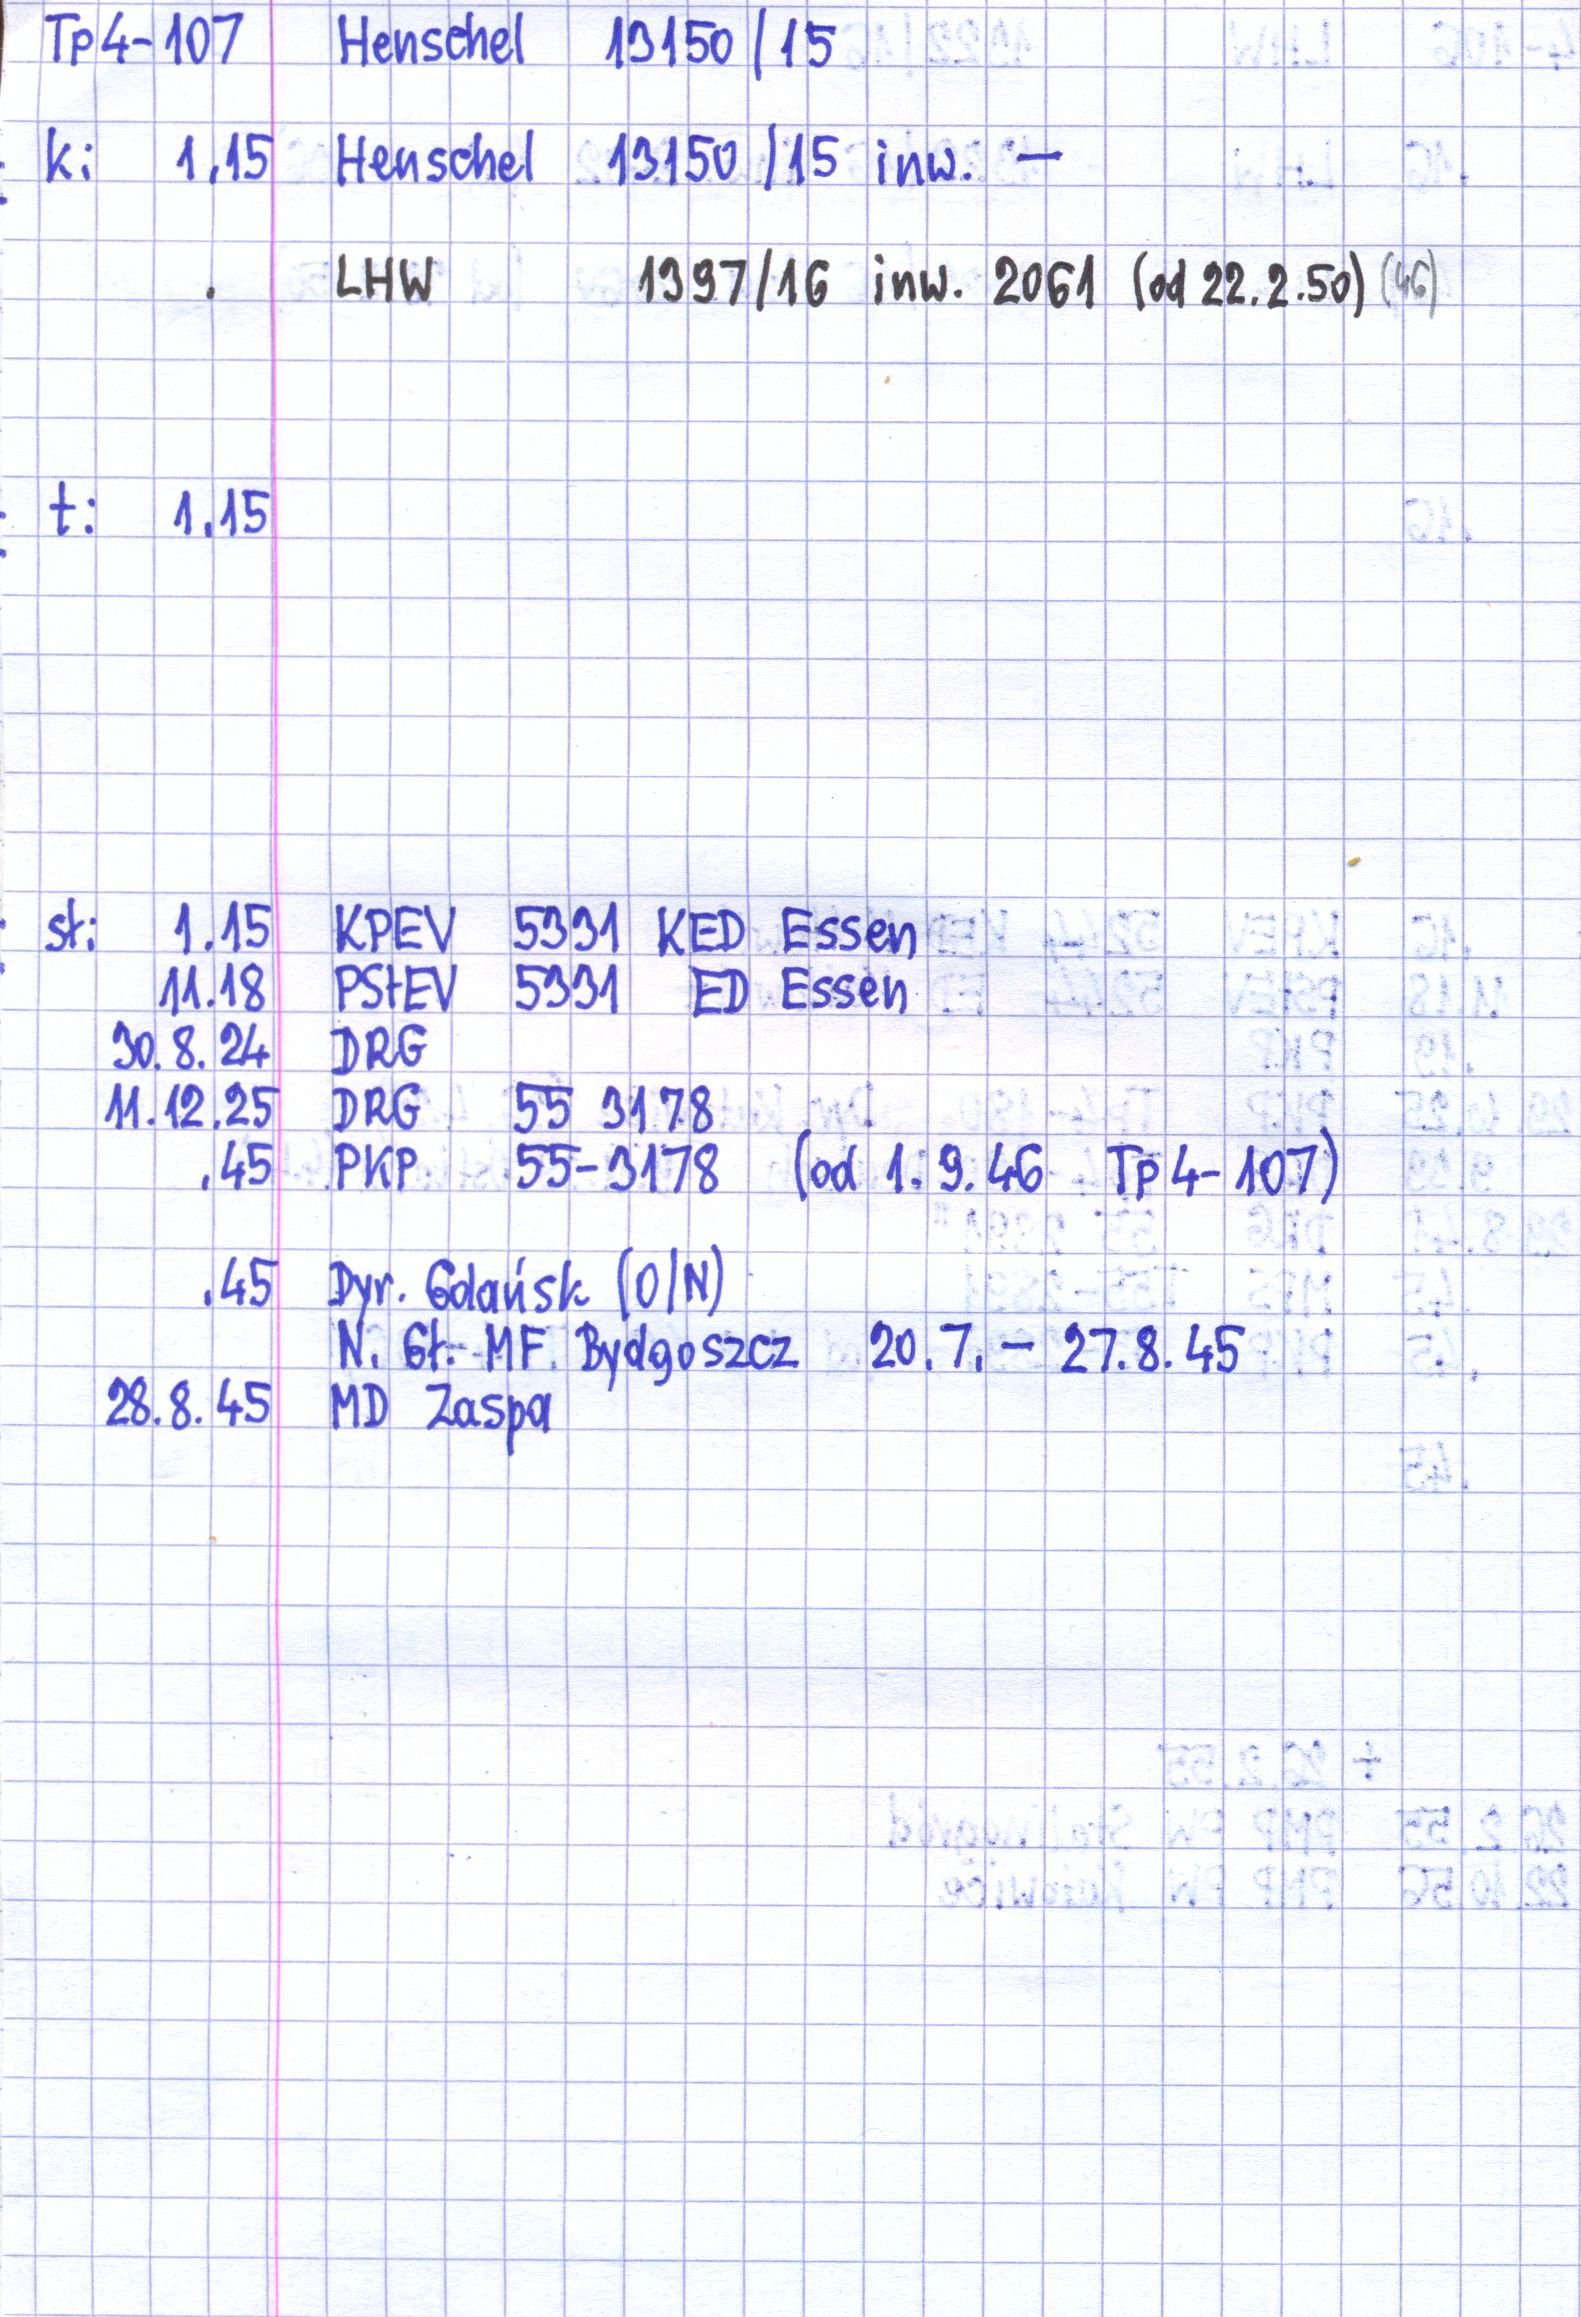 Tp4-107 Henschel 13150/15
k: 1.15 Henschel 13150/15 inw. —
. LHW 1397/16 inw. 2061 (od 22.2.50) (46)
t: 1.15
st: 1.15 KPEV 5331 KED Essen
11.18 PStEV 5331 ED Essen
30.8.24 DRG
11.12.25 DRG 55 3178
.45 PKP 55-3178 (od 1.9.46 Tp4-107)
.45 Dyr. Gdańsk (O/N)
N. Gł. MF Bydgoszcz 20.7. – 27.8.45
28.8.45 MD Zaspa